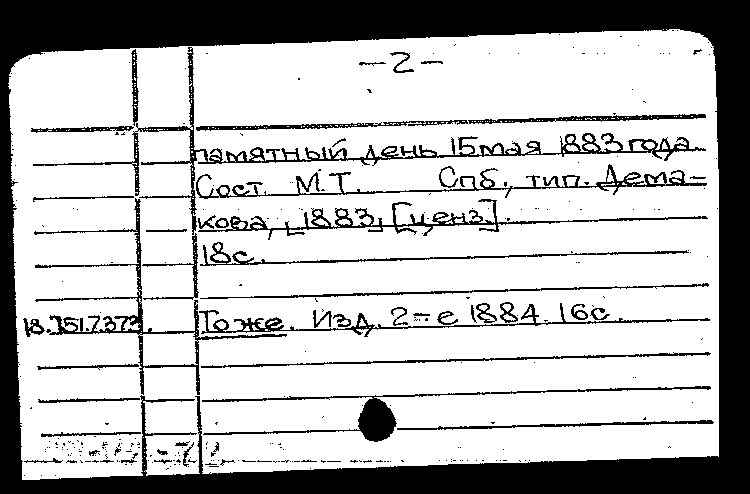 —2—
памятный день 15 мая 1883 года.
Сост. М.Т. Спб., тип. Дема-
кова, [1883] [ценз.].
18с.
18.151.7.373. То же. Изд. 2-е 1884. 16с.